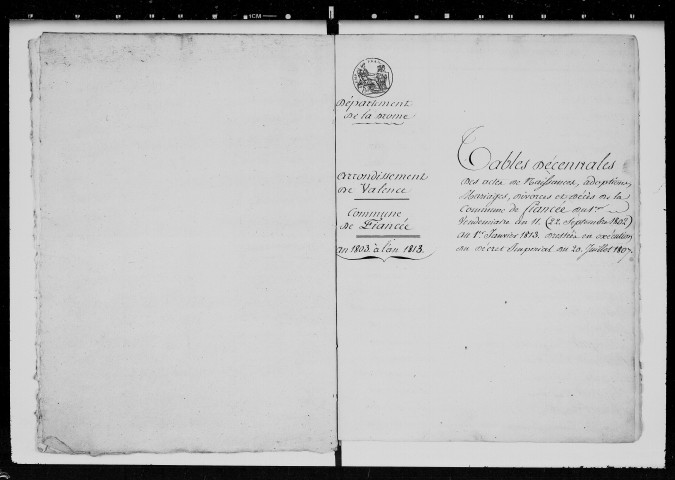 1CM
Département
De la Drome
Arrondissement
De Valence
Commune
De Fiancée
An 1803 à l'an 1813.
Tables Décennales
Des actes de Naissances, adoptions,
Mariages, divorces et décès de la
Commune de fiancée du 1er
Vendemiaire an 11. (22. Septembre 1802)
au 1er Janvier 1813. dressées en exécution
du décret Impérial du 20. Juillet 1807.